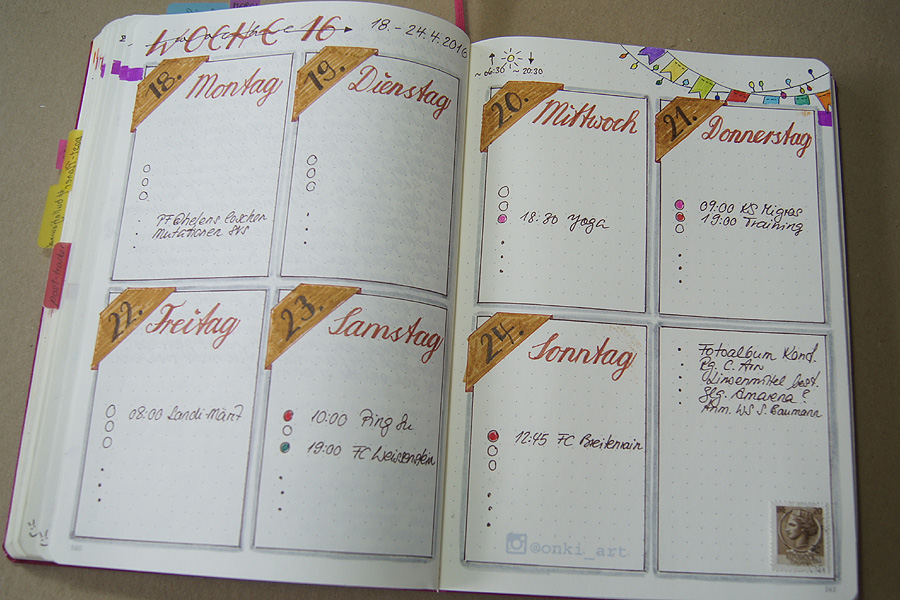 WOCHE 16
18. - 24.4.2016
18. Montag
PF @hefens löschen
Mutationen SVS
19. Dienstag
~06:30 ~20:30
20. Mittwoch
18:30 Yoga
21. Donnerstag
09:00 KS Migros
19:00 Training
22. Freitag
08:00 Landi-Märt
23. Samstag
10:00 Ping Su
19:00 FC Weissenstein
24. Sonntag
12:45 FC Breitenrain
Fotoalbum Kond.
Rg. C. Arn
Linsenmittel best.
Slg. Amarena?
Anm. WS S. Baumann
@onki_art